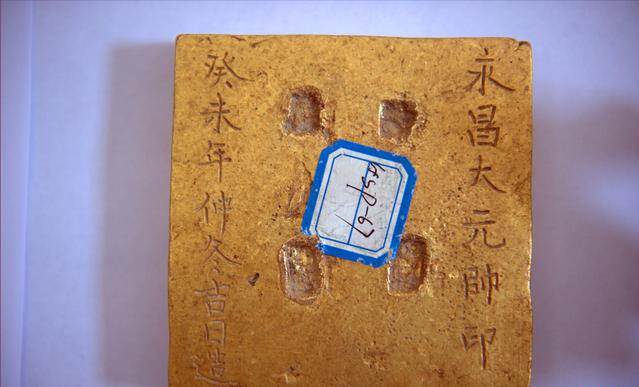 永昌大元帥印
癸未年仲冬吉日造